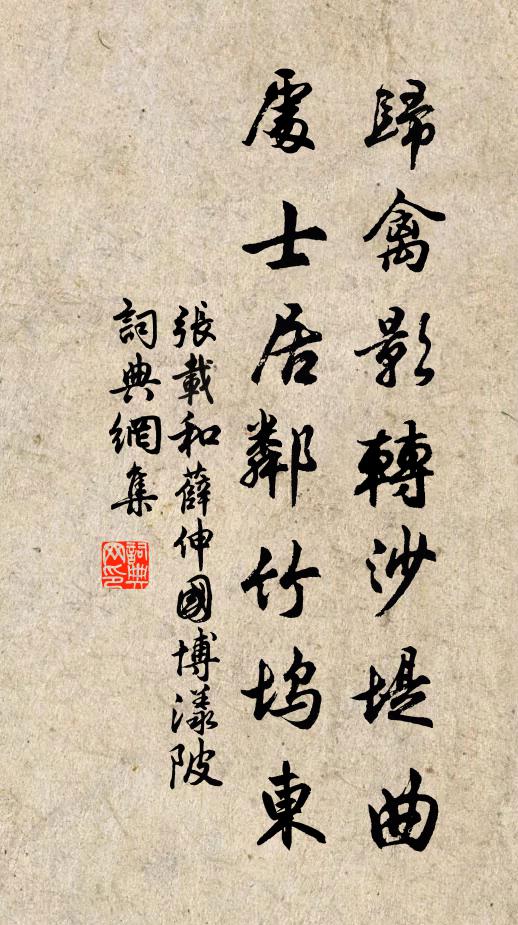 歸禽影轉沙堤曲
處士居鄰竹塢東
張載和薛伸國博漾陂
詞典網集
詞典网印